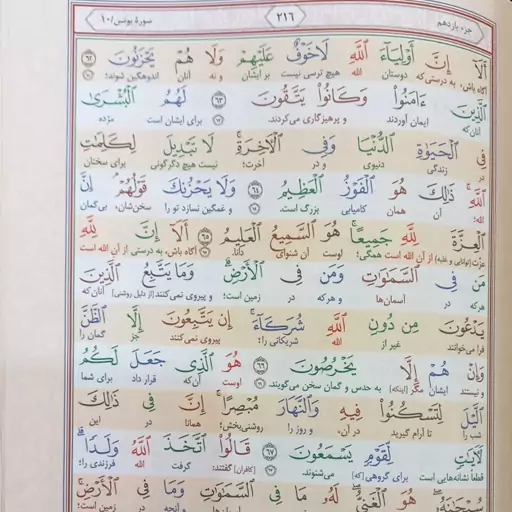 جزء یازدهم
۲۱۶
سورهٔ یونس/۱۰
أَلَآ إِنَّ أَوْلِيَآءَ ٱللَّهِ لَاخَوْفٌ عَلَيْهِمْ وَلَا هُمْ يَحْزَنُونَ ۶۲
آگاه باش، به درستی‌که دوستان الله هیچ ترسی نیست بر ایشان و نه آنان اندوهگین شوند؛
ٱلَّذِينَ ءَامَنُوا۟ وَكَانُوا۟ يَتَّقُونَ ۶۳ لَهُمُ ٱلْبُشْرَىٰ
آنان‌که ایمان آوردند و پرهیزگاری می‌کردند. برای ایشان است مژده
فِى ٱلْحَيَوٰةِ ٱلدُّنْيَا وَفِى ٱلْـَٔاخِرَةِ ۚ لَا تَبْدِيلَ لِكَلِمَٰتِ
در زندگی دنیوی و در آخرت؛ نیست هیچ دگرگونی برای سخنان
ٱللَّهِ ۚ ذَٰلِكَ هُوَ ٱلْفَوْزُ ٱلْعَظِيمُ ۶۴ وَلَا يَحْزُنكَ قَوْلُهُمْ ۘ إِنَّ
الله؛ آن همان کامیابی بزرگ است. و غمگین نسازد تو را سخن‌شان، بی‌گمان
ٱلْعِزَّةَ لِلَّهِ جَمِيعًا ۚ هُوَ ٱلسَّمِيعُ ٱلْعَلِيمُ ۶۵ أَلَآ إِنَّ لِلَّهِ
عزّت (توانایی و غلبه) از آن الله است همگی؛ اوست آن شنوای دانا. آگاه باش، به درستی از آن الله است
مَن فِى ٱلسَّمَٰوَٰتِ وَمَن فِى ٱلْأَرْضِ ۗ وَمَا يَتَّبِعُ ٱلَّذِينَ
هرکه در آسمان‌ها و هرکه در زمین است؛ و پیروی نمی‌کنند [از دلیل روشنی] آنان‌که
يَدْعُونَ مِن دُونِ ٱللَّهِ شُرَكَآءَ ۚ إِن يَتَّبِعُونَ إِلَّا ٱلظَّنَّ
فرا می‌خوانند غیر از الله شریکانی را؛ پیروی نمی‌کنند جز گمان را
وَإِنْ هُمْ إِلَّا يَخْرُصُونَ ۶۶ هُوَ ٱلَّذِى جَعَلَ لَكُمُ
و نیستند ایشان مگر [اینکه] به حدس و گمان سخن می‌گویند. اوست آن‌که قرار داد برای شما
ٱلَّيْلَ لِتَسْكُنُوا۟ فِيهِ وَٱلنَّهَارَ مُبْصِرًا ۚ إِنَّ فِى ذَٰلِكَ
شب را تا آرام گیرید در آن، و روز را روشنی‌بخش؛ همانا در این
لَـَٔايَٰتٍ لِّقَوْمٍ يَسْمَعُونَ ۶۷ قَالُوا۟ ٱتَّخَذَ ٱللَّهُ وَلَدًا ۗ
قطعاً نشانه‌هایی است برای گروهی [که] می‌شنوند. [کافران] گفتند: گرفت الله فرزندی را؛
سُبْحَٰنَهُۥ ۖ هُوَ ٱلْغَنِىُّ ۖ لَهُۥ مَا فِى ٱلسَّمَٰوَٰتِ وَمَا فِى ٱلْأَرْضِ ۚ
در آسمان‌ها و آنچه در زمین است؛